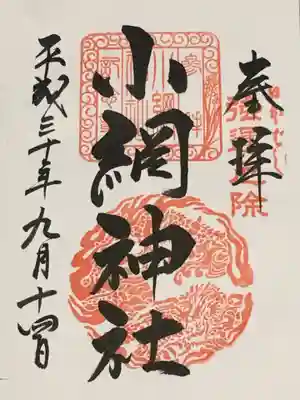 奉拝
強運厄除
小網神社
平成三十年九月十四日